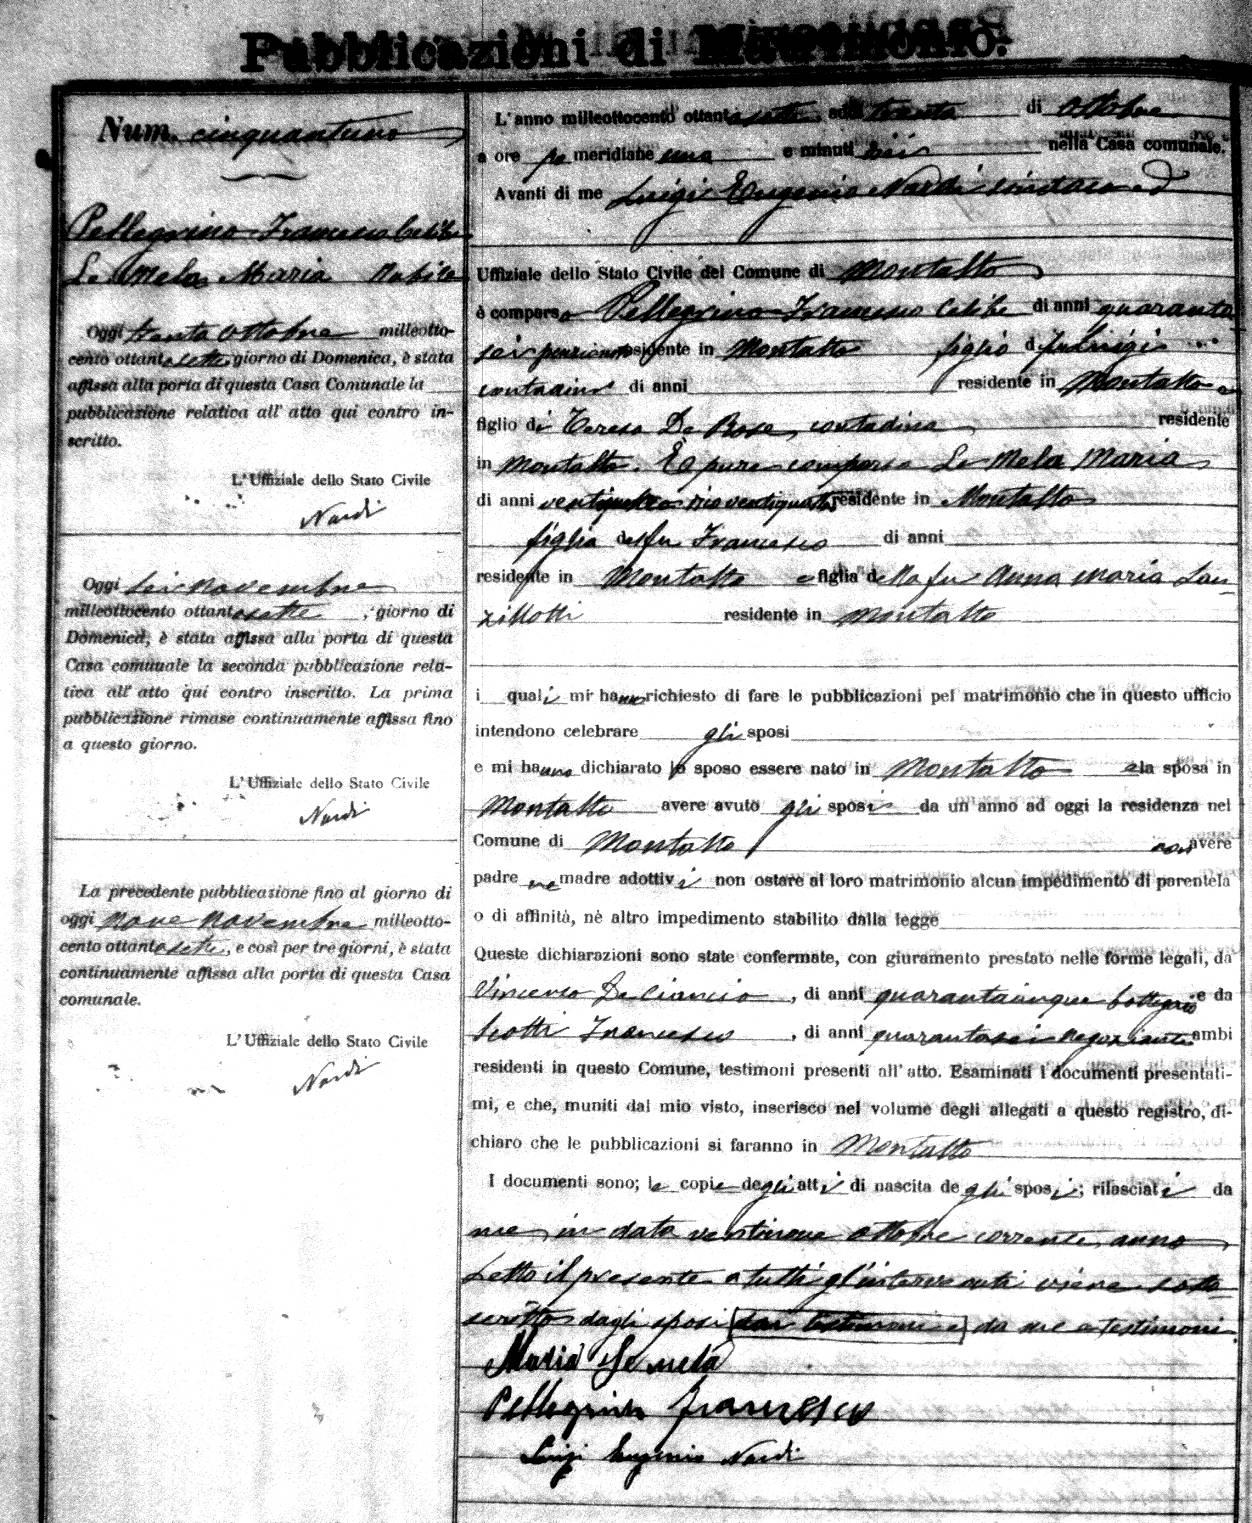 Pubblicazioni di Matrimonio.
Num. cinquantuno
Pellegrino Francesco Celibe
Le Mela Maria Nubile
Oggi trenta Ottobre milleotto-
cento ottantasette, giorno di Domenica, è stata
affissa alla porta di questa Casa Comunale la
pubblicazione relativa all' atto qui contro in-
scritto.
L' Uffiziale dello Stato Civile
Nardi
Oggi sei novembre
milleottocento ottantasette, giorno di
Domenica, è stata affissa alla porta di questa
Casa comunale la seconda pubblicazione rela-
tiva all' atto qui contro inscritto. La prima
pubblicazione rimase continuamente affissa fino
a questo giorno.
L' Uffiziale dello Stato Civile
Nardi
La precedente pubblicazione fino al giorno di
oggi nove novembre milleotto-
cento ottantasette, e così per tre giorni, è stata
continuamente affissa alla porta di questa Casa
comunale.
L' Uffiziale dello Stato Civile
Nardi
L' anno milleottocento ottantasette, addì trenta di Ottobre
a ore po meridiane una e minuti nella Casa comunale.
Avanti di me Luigi Eugenio Nardi sindaco ed
Uffiziale dello Stato Civile del Comune di Montalto
è comparso Pellegrino Francesco Celibe di anni quaranta
sei residente in Montalto figlio di fu Luigi
contadino di anni residente in Montalto e
figlio di Teresa De Rose, contadina residente
in Montalto. È pure comparsa Le Mela Maria
di anni ventiquattro residente in Montalto
figlia del fu Francesco di anni
residente in Montalto e figlia della fu Anna Maria Lan-
zillotti residente in Montalto
i quali mi hanno richiesto di fare le pubblicazioni pel matrimonio che in questo ufficio
intendono celebrare gli sposi
e mi hanno dichiarato lo sposo essere nato in Montalto e la sposa in
Montalto avere avuto gli sposi da un anno ad oggi la residenza nel
Comune di Montalto non avere
padre ne madre adottivi non ostare al loro matrimonio alcun impedimento di parentela
o di affinità, nè altro impedimento stabilito dalla legge
Queste dichiarazioni sono state confermate, con giuramento prestato nelle forme legali, da
Vincenzo De Ciancio, di anni quarantacinque bottegaio e da
Scotti Francesco, di anni quarantasei negoziante ambi
residenti in questo Comune, testimoni presenti all' atto. Esaminati i documenti presentati-
mi, e che, muniti dal mio visto, inserisco nel volume degli allegati a questo registro, di-
chiaro che le pubblicazioni si faranno in Montalto
I documenti sono; le copie degli atti di nascita degli sposi; rilasciati da
me in data ventinove ottobre corrente anno
Letto il presente a tutti gl'intervenuti viene sotto
scritto dagli sposi dai testimoni e da me e testimoni.
Maria Le Mela
Pellegrino Francesco
Luigi Eugenio Nardi